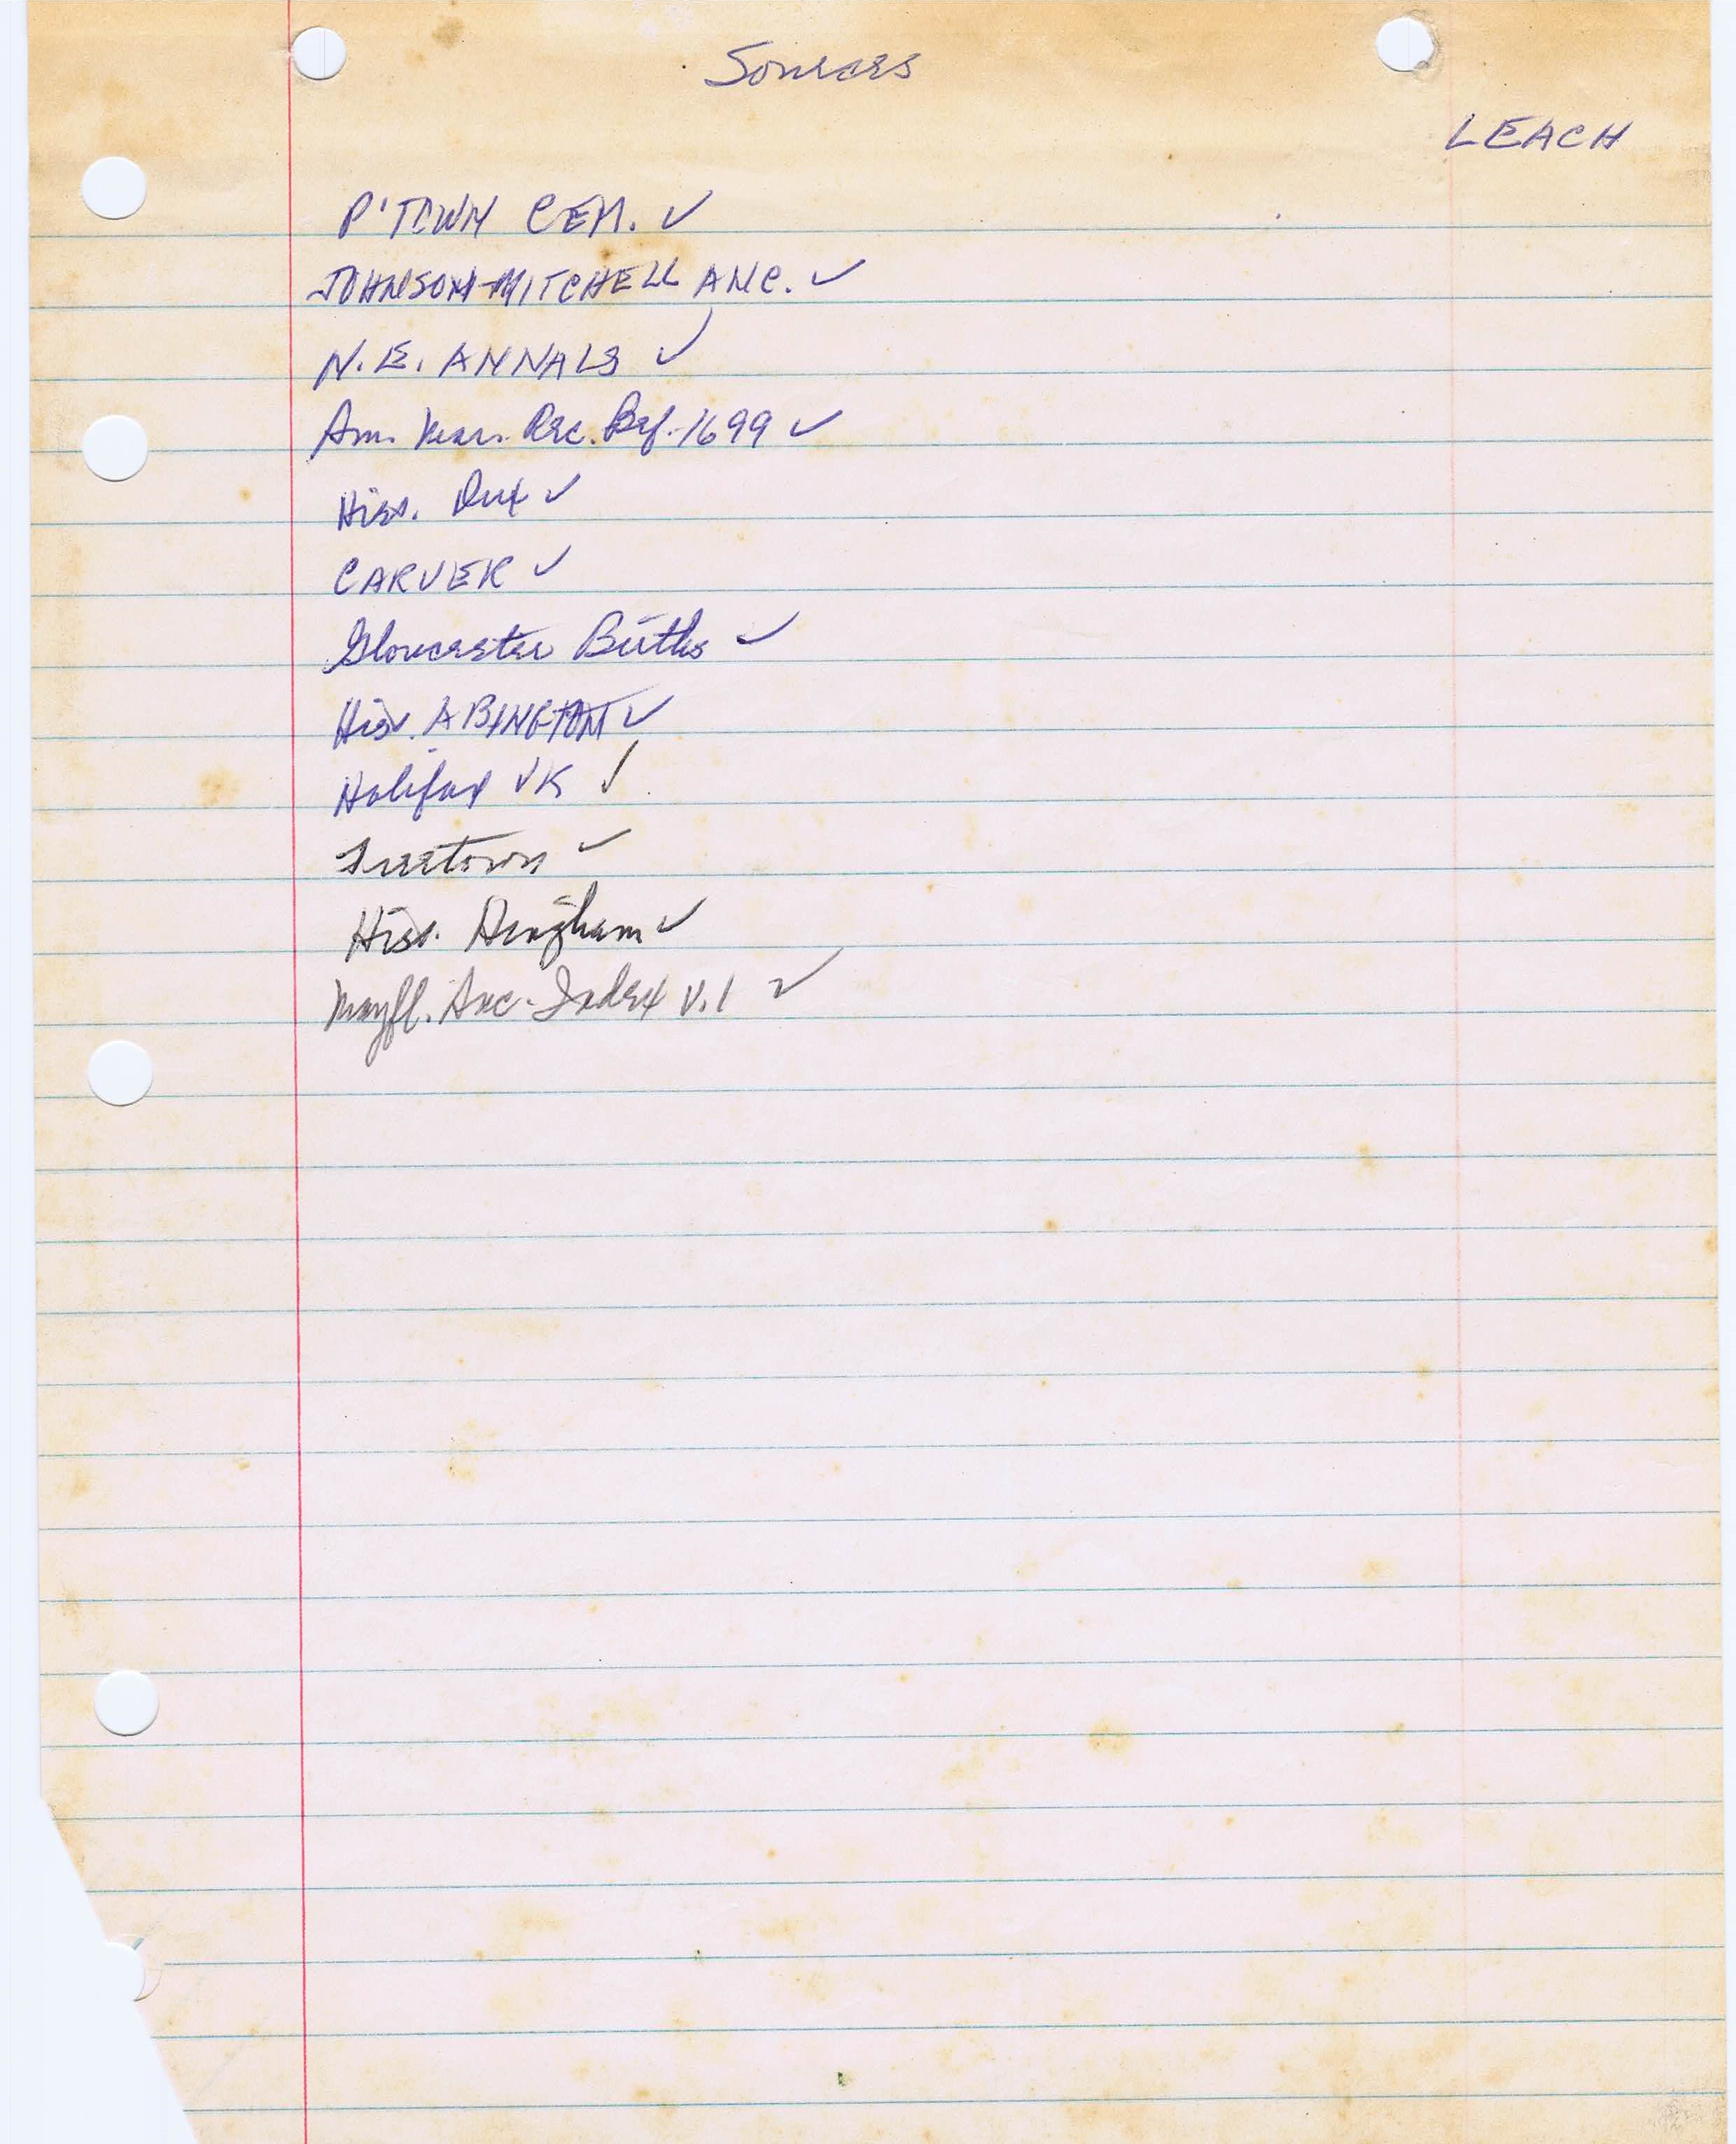 Sources
LEACH
P'TOWN CEM. ✓
JOHNSON-MITCHELL ANC. ✓
N.E. ANNALS ✓
Am. Marr. Rec. Bef. 1699 ✓
Hist. Dux ✓
CARVER ✓
Gloucester Births ✓
Hist. ABINGTON ✓
Halifax VR ✓
Freetown ✓
Hist. Hingham ✓
Mayfl. Anc. Index V.1 ✓